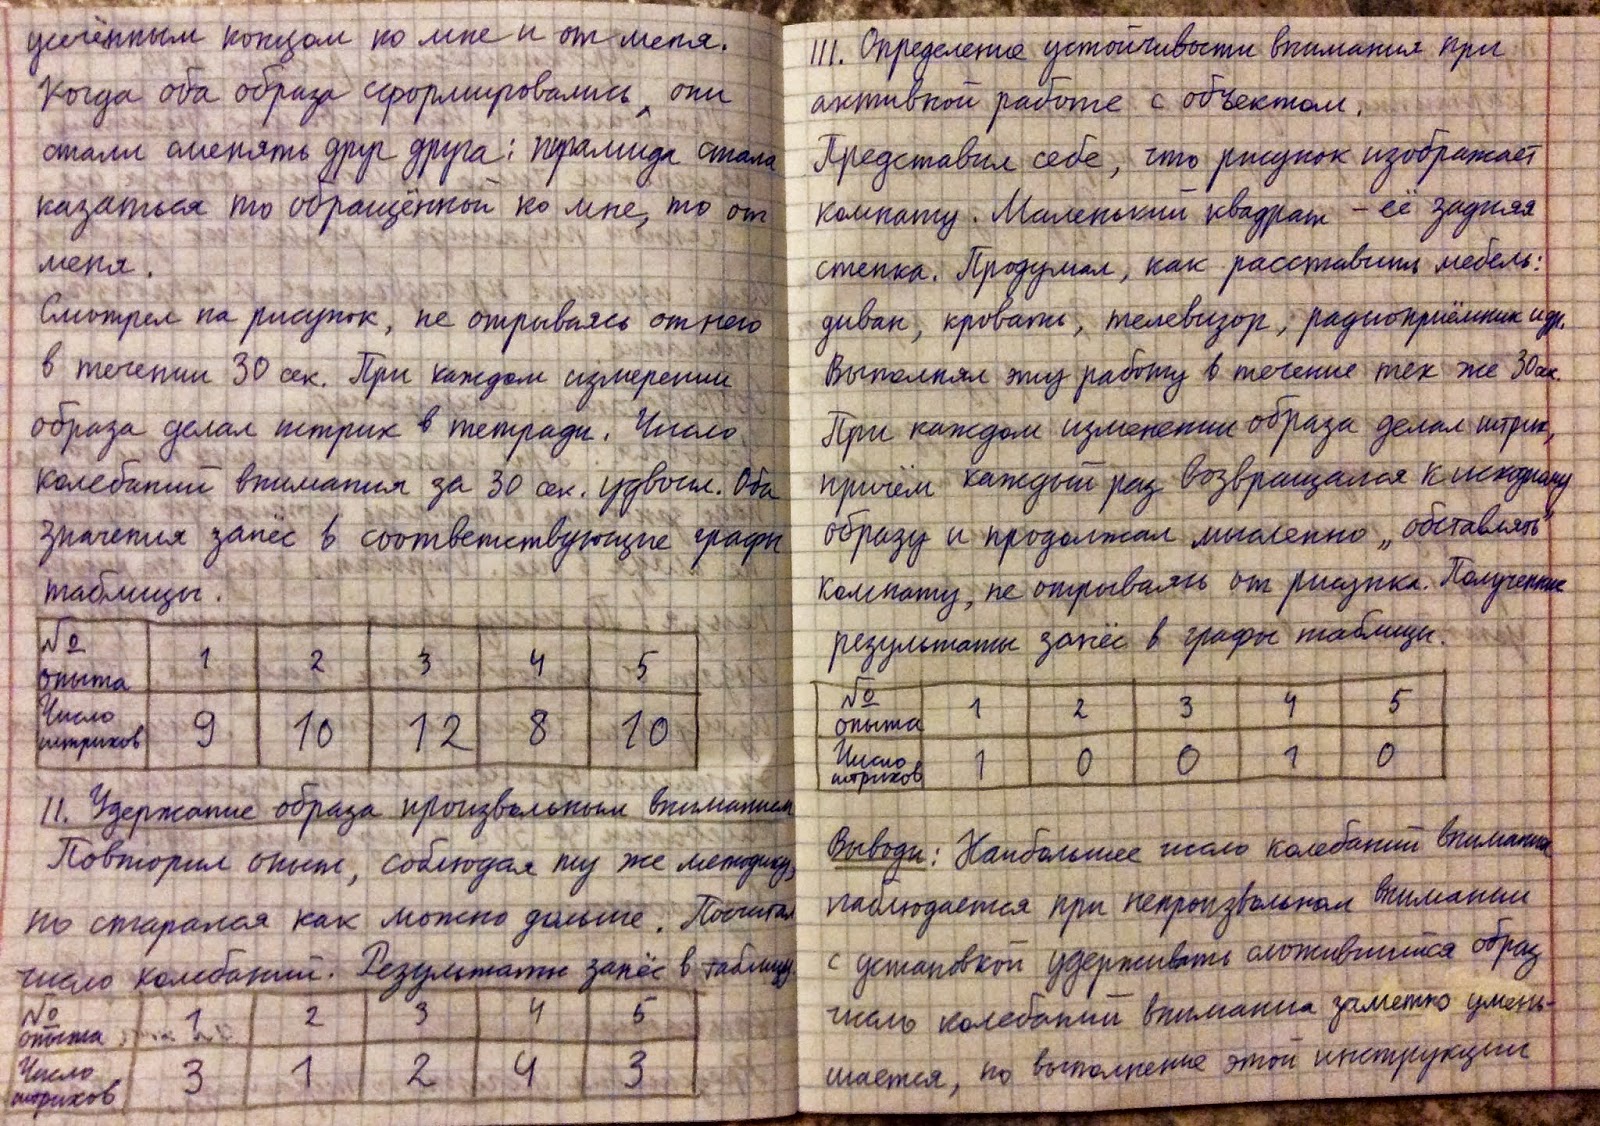 усечённым концом ко мне и от меня.
Когда оба образа сформировались, они
стали сменять друг друга: пирамида стала
казаться то обращённой ко мне, то от
меня.
Смотрел на рисунок, не отрываясь от него
в течении 30 сек. При каждом измерении
образа делал штрих в тетради. Число
колебаний внимания за 30 сек. удвоил. Оба
значения занёс в соответствующие графы
таблицы.
№ опыта 1 2 3 4 5
Число штрихов 9 10 12 8 10
II. Удержание образа произвольным вниманием
Повторил опыт, соблюдая ту же методику,
но старался как можно дольше. Посчитал
число колебаний. Результаты занёс в таблицу.
№ опыта 1 2 3 4 5
Число штрихов 3 1 2 4 3
III. Определение устойчивости внимания при
активной работе с объектом.
Представил себе, что рисунок изображает
комнату. Маленький квадрат – её задняя
стенка. Продумал, как расставить мебель:
диван, кровать, телевизор, радиоприёмник и др.
Выполнял эту работу в течение тех же 30 сек.
При каждом изменении образа делал штрих,
причём каждый раз возвращался к исходному
образу и продолжал мысленно „обставлять“
комнату, не отрываясь от рисунка. Полученные
результаты занёс в графы таблицы.
№ опыта 1 2 3 4 5
Число штрихов 1 0 0 1 0
Выводы: Наибольшее число колебаний внимания
наблюдается при непроизвольном внимании
с установкой удерживать сложившийся образ
число колебаний внимания заметно умень-
шается, но выполнение этой инструкции